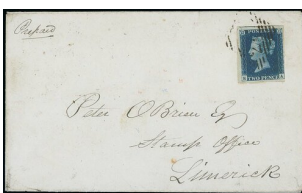 Prepaid
POSTAGE
TWO PENCE
Peter O'Brien Esq
Stamp Office
Limerick